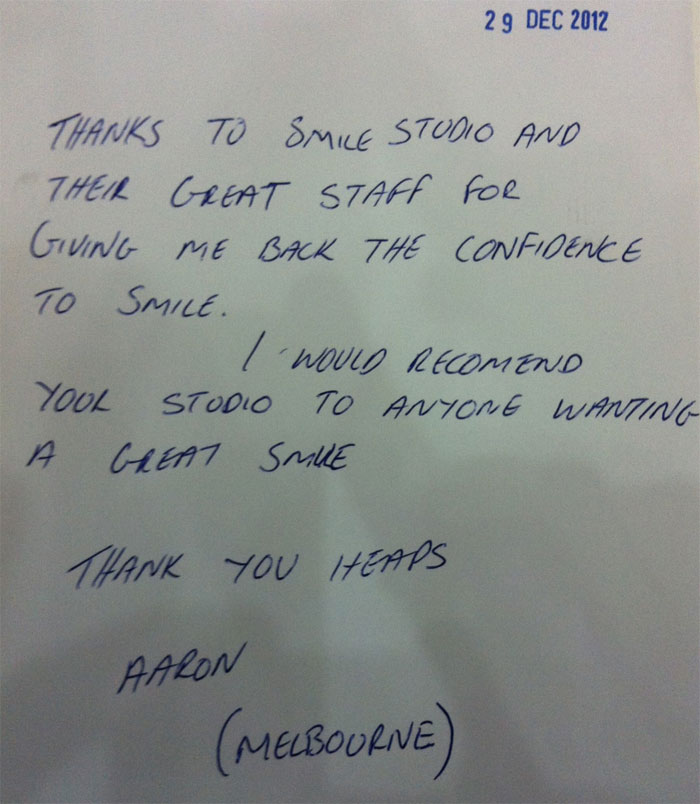 29 DEC 2012
THANKS TO SMILE STUDIO AND
THEIR GREAT STAFF FOR
GIVING ME BACK THE CONFIDENCE
TO SMILE.
I WOULD RECOMEND
YOUR STUDIO TO ANYONE WANTING
A GREAT SMILE
THANK YOU HEAPS
AARON
(MELBOURNE)